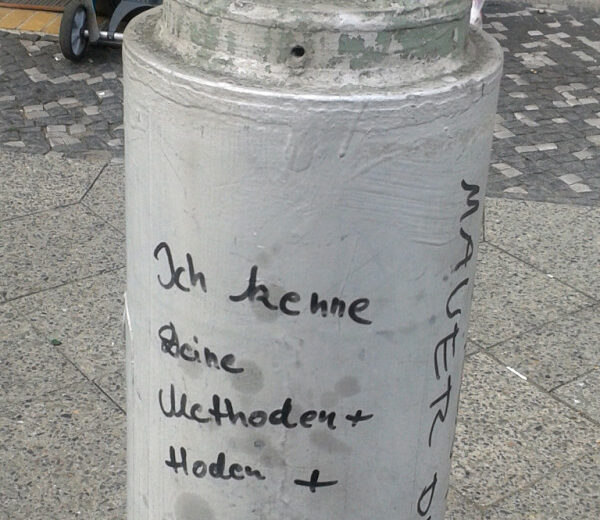 Ich kenne
Deine
Methoden +
Hoden +
MAUER